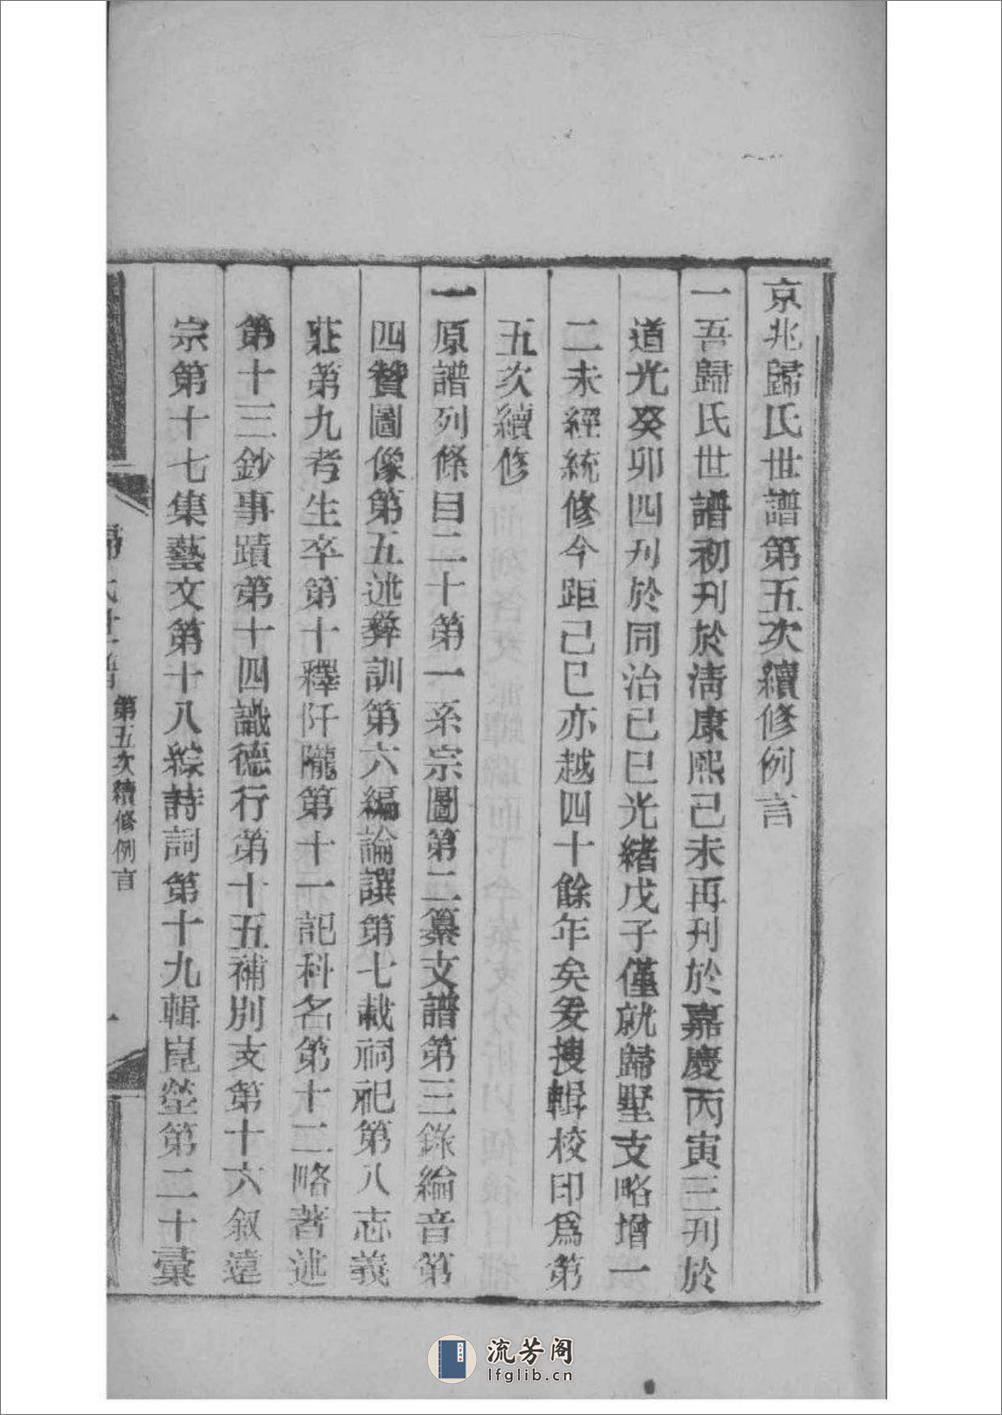 京兆歸氏世譜第五次續修例言
一吾歸氏世譜初刊於清康熙己未再刊於嘉慶丙寅三刊於
道光癸卯四刊於同治己巳光緒戊子僅就歸墅支略增一
二未經統修今距己巳亦越四十餘年矣爰搜輯校印爲第
五次續修
一原譜列條目二十第一系宗圖第二纂支譜第三錄綸音第
四贊圖像第五述彝訓第六編論譔第七載祠祀第八志義
莊第九考生卒第十釋阡隴第十一記科名第十二略著述
第十三鈔事蹟第十四識德行第十五補別支第十六叙遠
宗第十七集藝文第十八綜詩詞第十九輯崑塋第二十彙
第五次續修例言
一
流芳阁
lfglib.cn